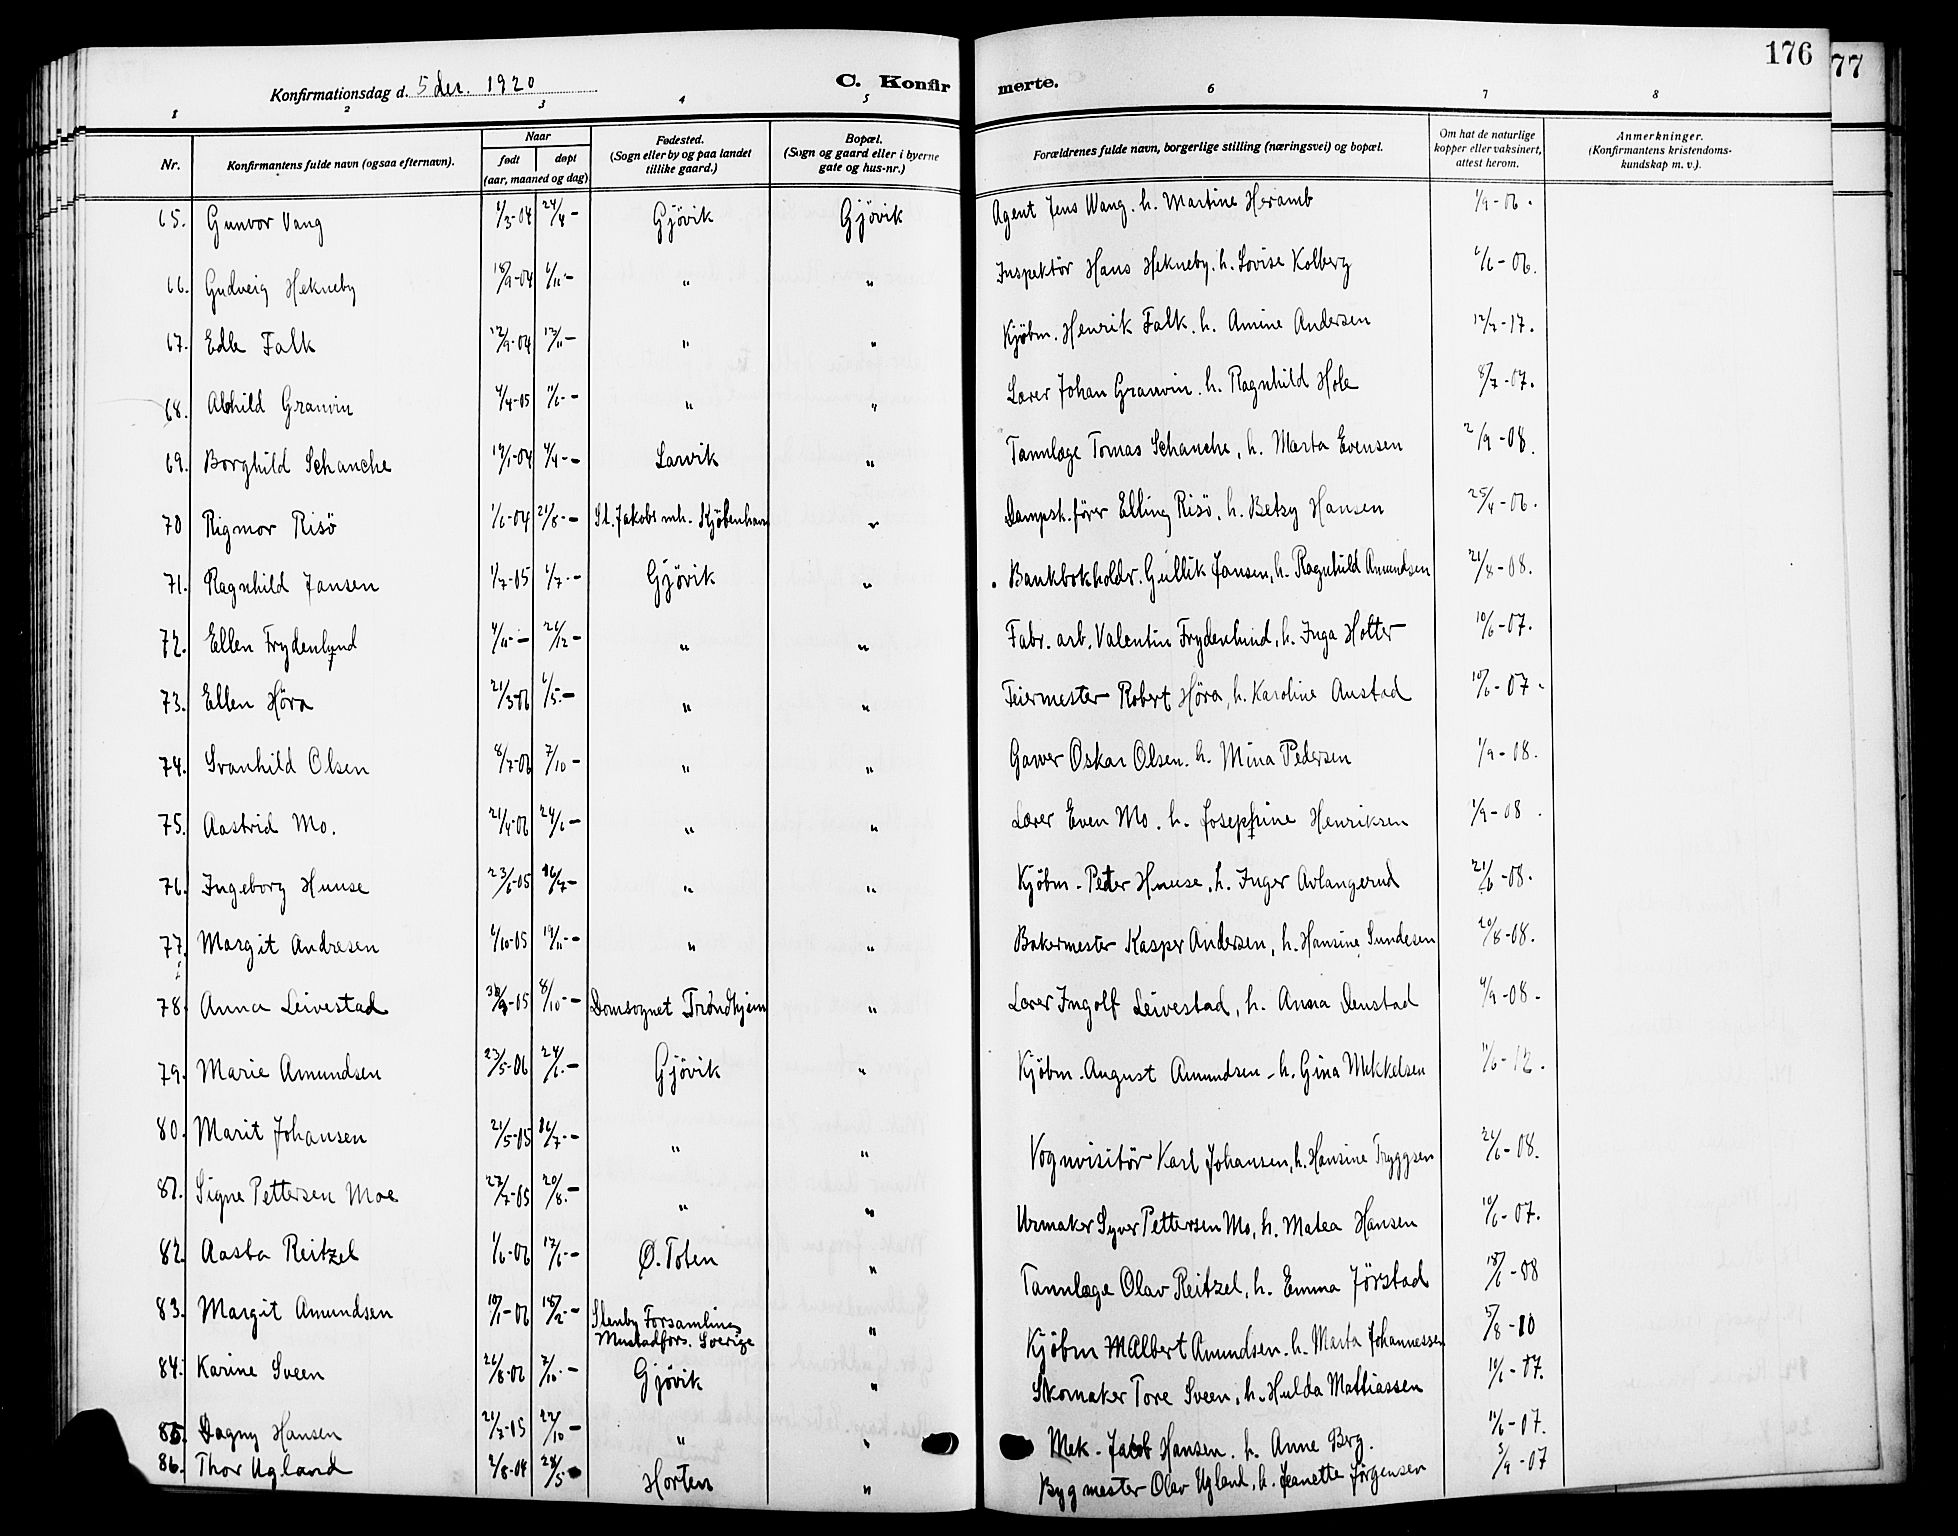 176
77
Konfirmationsdag d. 5 des. 1920
C. Konfirmerte.
1 2 3 4 5 6 7 8
Nr.
Konfirmantens fulde navn (ogsaa efternavn).
Naar
født
døpt
(aar, maaned og dag)
Fødested.
(Sogn eller by og paa landet
tillike gaard.)
Bopæl.
(Sogn og gaard eller i byerne
gate og hus-nr.)
Forældrenes fulde navn, borgerlige stilling (næringsvei) og bopæl.
Om hat de naturlige
kopper eller vaksinert,
attest herom.
Anmerkninger.
(Konfirmantens kristendoms-
kundskap m. v.).
65. Gunvor Vang 1/3-04 24/4 - Gjövik Gjövik Agent Jens Wang. h. Martine Heramb 1/9-06.
66. Gudveig Hekneby 18/9-04 6/11 - " " Inspektör Hans Hekneby. h. Lovise Kolberg 6/6-06.
67. Edle Falk 12/9-04 13/11 - " " Kjöbm. Henrik Falk. h. Amine Andersen 12/7-17.
68. Granvin 4/4-05 11/6 - " " Lærer Johan Granvin. h. Ragnhild Hole 8/7-07.
69. Borghild Schanche 19/1-04 4/4 - Larvik " Tannlæge Tomas Schanche, h. Marta Evensen 2/9-08.
70 Rigmor Risö 1/6-04 21/8 - St. Jakobs mh. Kjöbenhavn " Dampsk.förer Elling Risö. h. Betsy Hansen 25/4-06.
71. Ragnhild Jansen 1/7-05 6/7 - Gjövik " Bankbokholdr. Gullik Jansen, h. Ragnhild Amundsen 21/8-08.
72. Ellen Frydenlund 4/11 - 26/12 - " " Fabr. arb. Valentin Frydenlund, h. Inga Holter 10/6-07.
73. Ellen Höra 21/3-06 6/5 - " " Feiermester Robert Höra, h. Karoline Anstad 10/6-07.
74. Svanhild Olsen 8/7-06 7/10 - " " Garver Oskar Olsen. h. Mina Pedersen 1/9-08.
75. Aastrid Mo. 21/4-06 24/6 - " " Lærer Even Mo. h. Josephine Henriksen 1/9-08.
76. Ingeborg Huuse 23/6-05 16/7 - " " Kjöbm. Peter Huuse, h. Inger Avlangerud 21/6-08.
77. Margit Andresen 6/10-05 19/11 - " " Bakermester Kasper Andersen, h. Hansine Sundesen 20/8-08.
78. Anna Leivestad 30/9-05 8/10 - Domsognet Trondhjem " Lærer Ingolf Leivestad, h. Anna Denstad 4/9-08.
79. Marie Amundsen 23/5-06 24/6 - Gjövik " Kjöbm. August Amundsen - h. Gina Mikkelsen 11/6-12.
80. Marit Johansen 21/5-05 16/7 - " " Vognvisitör Karl Johansen, h. Hansine Tryggsen 26/6-08.
81. Signe Pettersen Moe 27/7-05 20/8 - " " Urmaker Syver Pettersen Mo, h. Matea Hansen 10/6-07.
82. Aasta Reitzel 1/6-06 17/6 - Ø. Toten " Tannlæge Olav Reitzel, h. Emma Jörstad 18/6-08
83. Margit Amundsen 10/1-06 18/2 - Slenby Forsamling
Mustadfors. Sverige " Kjöbm Albert Amundsen. h. Marta Johannessen 5/8-10
84. Karine Sveen 26/8-06 7/10 - Gjövik " Skomaker Tore Sveen, h. Hulda Mathiassen 10/6-07.
85. Dagny Hansen 21/7-05 22/10 - " " Mek. Jakob Hansen. h. Anne Berg. 11/6-07.
86. Thor Ugland 2/8-04 28/5 Horten " Bygmester Olav Ugland, h. Jeanette Jörgensen 3/9-07